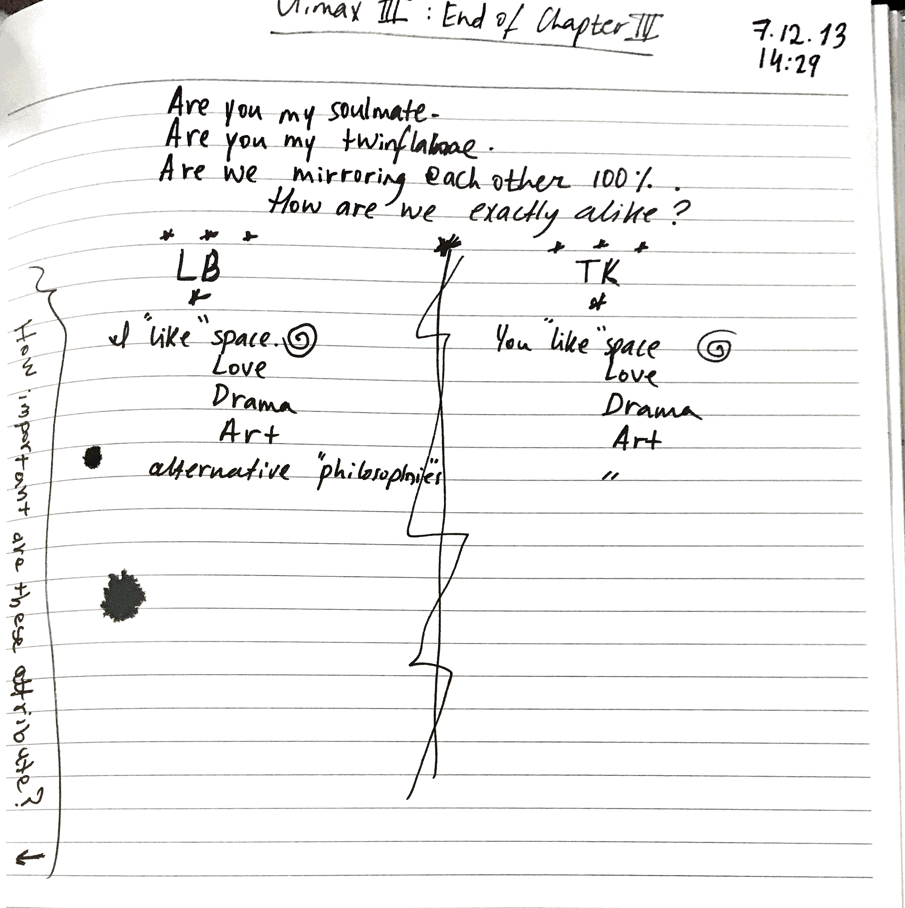 Climax III : End of Chapter IV
7.12.13
14:29
Are you my soulmate-
Are you my twinflamae.
Are we mirroring each other 100%.
How are we exactly alike?
LB
TK
I "like" space.
You "like" space
Love
Love
Drama
Drama
Art
Art
alternative "philosophies"
"
How important are these attribute?